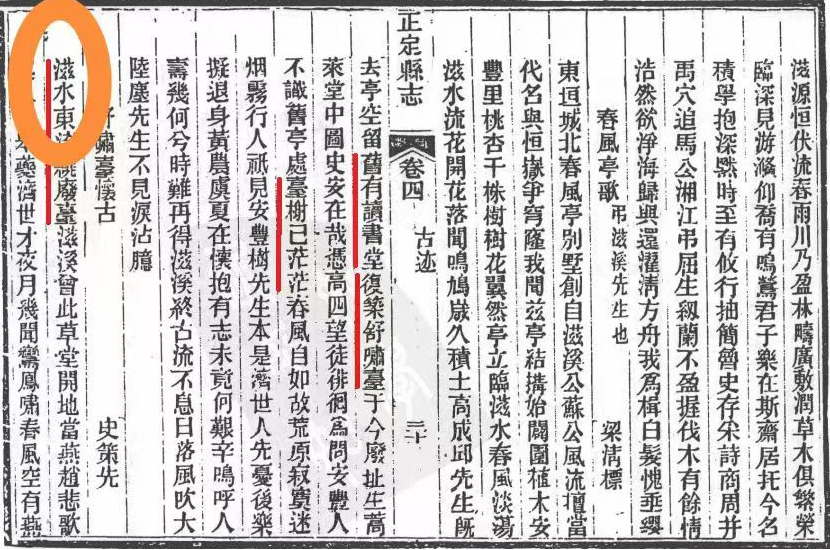 滋源恒伏流春雨川乃盈林疇廣敷潤草木俱繁榮
臨深見游儵仰喬有鳴鶯君子樂在斯齋居托今名
積學抱深時至有攸行抽簡魯史存采詩商周幷
禹穴追馬公湘江弔屈生紉蘭不盈握伐木有餘情
浩然欲淨海歸與還濯淸方舟我爲楫白髮愧垂纓
春風亭歌 弔滋溪先生也 梁淸標
東垣城北春風亭別墅創自滋溪公蘇公風流壇當
代名與恒嶽爭穹窿我聞茲亭結搆始闢圃植木安
豐里桃杏千株樹樹花翼然亭立臨滋水春風淡蕩
滋水流花開花落聞鳴鳩嵗久積土高成邱先生旣
正定縣志 卷四 古迹 三十
去亭空留舊有讀書堂復築舒嘯臺于今廢址生蒿
萊堂中圖史安在哉憑高四望徒徘徊爲問安豐人
不識舊亭處臺榭已茫茫春風自如故荒原寂寞迷
烟霧行人祇見安豐樹先生本是濟世人先憂後樂
擬退身黃農虞夏在懷抱有志未竟何艱辛嗚呼人
壽幾何兮時難再得滋溪終古流不息日落風吹大
陸塵先生不見淚沾臆
舒嘯臺懷古 史策先
滋水東流繞廢臺滋溪曾此草堂開地當燕趙悲歌
藥濟世才夜月幾聞鸞鳳嘯春風空有燕